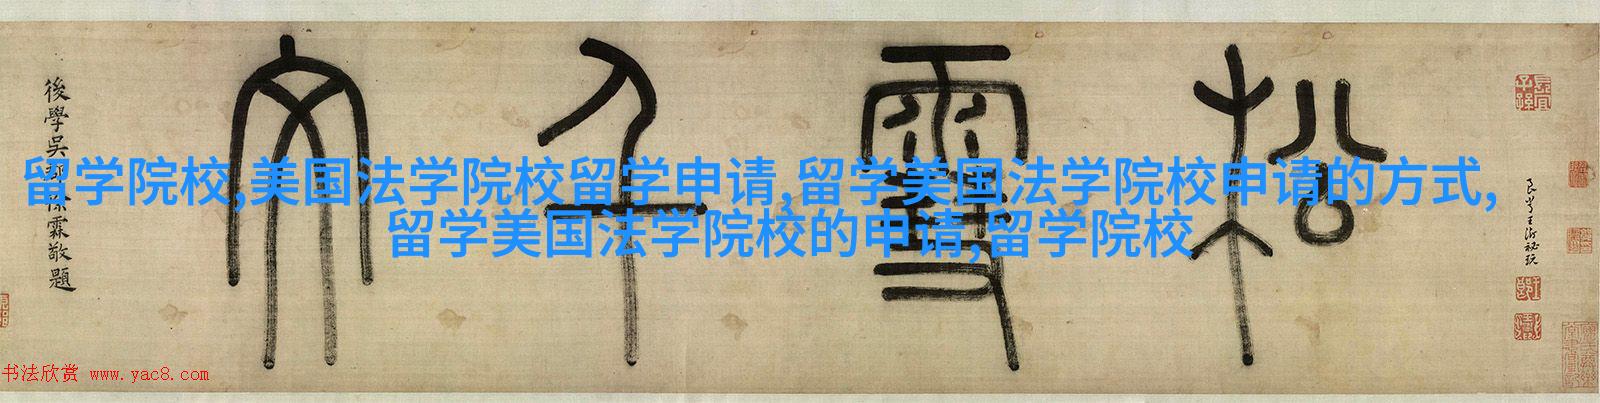 松雪千文
良常王澍祕玩
後學吳霖敬題
留学院校,美国法学院校留学申请,留学美国法学院校申请的方式,
留学美国法学院校的申请,留学院校
书法欣赏 www.yac8.com